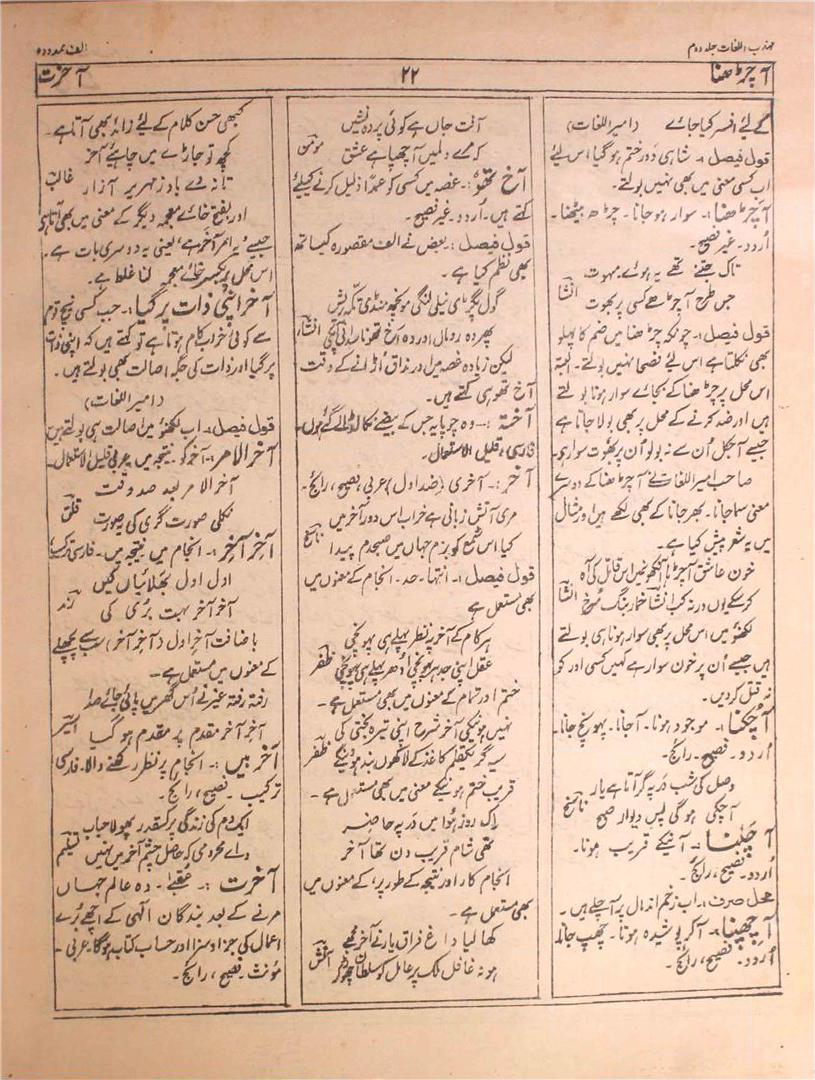 مہذب اللغات جلد دوم
الف ممدودہ
آ چڑھنا
۲۲
آخرت
کے لئے افسر کیا جائے (امیر اللغات)
قول فیصل :۔ شاہی دَور ختم ہو گیا اس لیے
اب کسی معنی میں بھی نہیں بولتے۔
آ چڑھنا :۔ سوار ہو جانا۔ چڑھ بیٹھنا۔
اُردو۔ غیر فصیح۔
تاک جتنے تھے یہ ہوئے مبہوت
جس طرح آ چڑھے کسی پر بھوت انشا
قول فیصل :۔ چونکہ چڑھنا میں ضم کا پہلو
بھی نکلتا ہے اس لیے فصحا نہیں بولتے۔ البتہ
اس محل پر چڑھنا کے بجائے سوار ہونا بولتے
ہیں اور ضد کرنے کے محل پر بھی بولا جاتا ہے
جیسے آجکل اُن سے نہ بولو اُن پر بھوت سوار ہے۔
صاحب امیر اللغات نے آ چڑھنا کے دوسرے
معنی سما جانا۔ بھر جانا کے بھی لکھے ہیں اور مثال
میں یہ شعر پیش کیا ہے۔
خون عاشق آ چڑھا آنکھوں میں اس قاتل کی آہ
کر سکے یوں ورنہ کب انشا خمار بنگ سُرخ انشا
لکھنؤ میں اس محل پر بھی سوار ہونا ہی بولتے
ہیں جیسے اُن پر خون سوار ہے کہیں کسی اور کو
نہ قتل کر دیں۔
آ چُکنا :۔ موجود ہونا۔ آجانا۔ پہونچ جانا۔
اُردو۔ فصیح۔ رائج۔
وصل کی شب دَر پہ گر آتا ہے یار
آچکی ہوگی پس دیوار صبح ناسخ
آ چلنا :۔ آنیکے قریب ہونا۔
اُردو۔ فصیح، رائج۔
محل صرف :۔ اب زخم اندمال پر آ چلے ہیں۔
آ چھپنا :۔ آ کر پوشیدہ ہونا۔ چھپ جانا۔
اُردو۔ فصیح، رائج۔
آفت جاں ہے کوئی پردہ نشیں
کہ مرے دل میں آ چھپا ہے عشق مومن
آخ تھو :۔ غصہ میں کسی کو عمداً ذلیل کرنے کیلئے
کہتے ہیں۔ اُردو۔ غیر فصیح۔
قول فیصل :۔ بعض نے الف مقصورہ کیساتھ
بھی نظم کیا ہے۔
گول پگڑی نیلی لنگی مونچھ منڈی تکہ ریش
پھر وہ رومال اور وہ اخ تھو ناسدانی آپکی انشا
لیکن زیادہ غصہ میں اور مذاق اُڑانے کے وقت
آخ تھو ہی کہتے ہیں۔
آختہ :۔ وہ چوپایہ جس کے بیضے نکال ڈالے گئے ہوں۔
فارسی، قلیل الاستعمال۔
آخر :۔ آخری (ضد اول) عربی، فصیح، رائج۔
مری آتش زبانی ہے خراب اس دور آخر میں
کیا اس شمع کو بزم جہاں میں صبحدم پیدا ناسخ
قول فیصل :۔ انتہا۔ حد۔ انجام کے معنوں میں
بھی مستعمل ہے
ہر کام کے آخر پر نظر پہلے ہی پہونچی
عقل اپنی جدھر پہونچی اُدھر پہلے ہی پہونچی ظفر
ختم اور تمام کے معنوں میں بھی مستعمل ہے۔
نہیں ہونیکی آخر شرح اپنی تیرہ بختی کی
سیہ گر یکقلم کاغذ کے لاکھوں بند ہووینگے ظفر
قریب ختم ہونیکے معنی میں بھی مستعمل ہے۔
اک روز ہُوا میں دَر پہ حاضر
تھی شام قریب دن تھا آخر
انجام کار اور نتیجہ کے طور پر، کے معنوں میں
بھی مستعمل ہے۔
کھا لیا داغ فراق یار نے آخر مجھے
ہو نہ غافل ملک پر عامل کو سلطان چھوڑ کر آتش
کبھی حسن کلام کے لیئے زائد بھی آتا ہے۔
کچھ تو جاڑے میں چاہیئے آخر
تا نہ دے باد زمہریر آزار غالب
اور بفتح خائے معجمہ دیگر کے معنی میں بھی آتا ہے
جیسے یہ امر آخَر ہے، یعنی یہ دوسری بات ہے۔
اس محل پر بکسر خائے معجمہ کہنا غلط ہے۔
آخر اپنی ذات پر گیا :۔ جب کسی نیچ قوم
سے کوئی خراب کام ہوتا ہے تو کہتے ہیں کہ اپنی ذات
پر گیا اور ذات کی جگہ اصالت بھی بولتے ہیں۔
(امیر اللغات)
قول فیصل :۔ اب لکھنؤ میں اصالت ہی بولتے ہیں
آخر الامر :۔ آخر کو۔ نتیجہ میں۔ عربی قلیل الاستعمال۔
آخر الامر بعد صد دقت
نکلی صورت گری کی یہ صورت قلق
آخر آخر :۔ انجام میں نتیجہ میں۔ فارسی ترکیب
اول اول بھلائیاں کیں
آخر آخر بہت بُری کی رند
باضافت آخرِ اول (آخرِ آخر) سب سے پچھلے
کے معنوں میں مستعمل ہے۔
رفتہ رفتہ غیر نے اُس گھر میں پائی جائے صدر
آخرِ آخر مقدم پر مقدم ہو گیا اسیر
آخر بیں :۔ انجام پر نظر رکھنے والا۔ فارسی
ترکیب۔ فصیح، رائج۔
ایکدم کی زندگی پر کسقدر پھولا حباب
واے محرومی کہ حاصل چشم آخر بیں نہیں تسلیم
آخرت :۔ عقبےٰ۔ وہ عالم جہاں
مرنے کے بعد بندگان الٰہی کے اچھے بُرے
اعمال کی جزا و سزا اور حساب کتاب ہوگا۔ عربی۔
مونث۔ فصیح، رائج۔